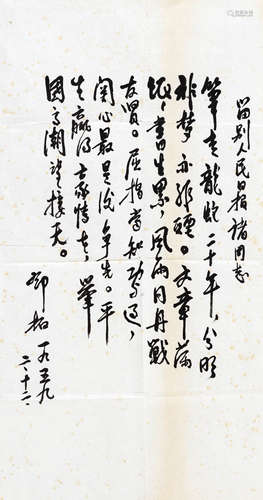 留别人民日报诸同志
笔走龙蛇二十年，分明
非梦亦非烟。文章满
纸书生累，风雨同舟战
友贤。屈指当知功过，
关心最是后争先。平
生赢得豪情在，举
国高潮望接天。
邓拓 一九五九
二·十二